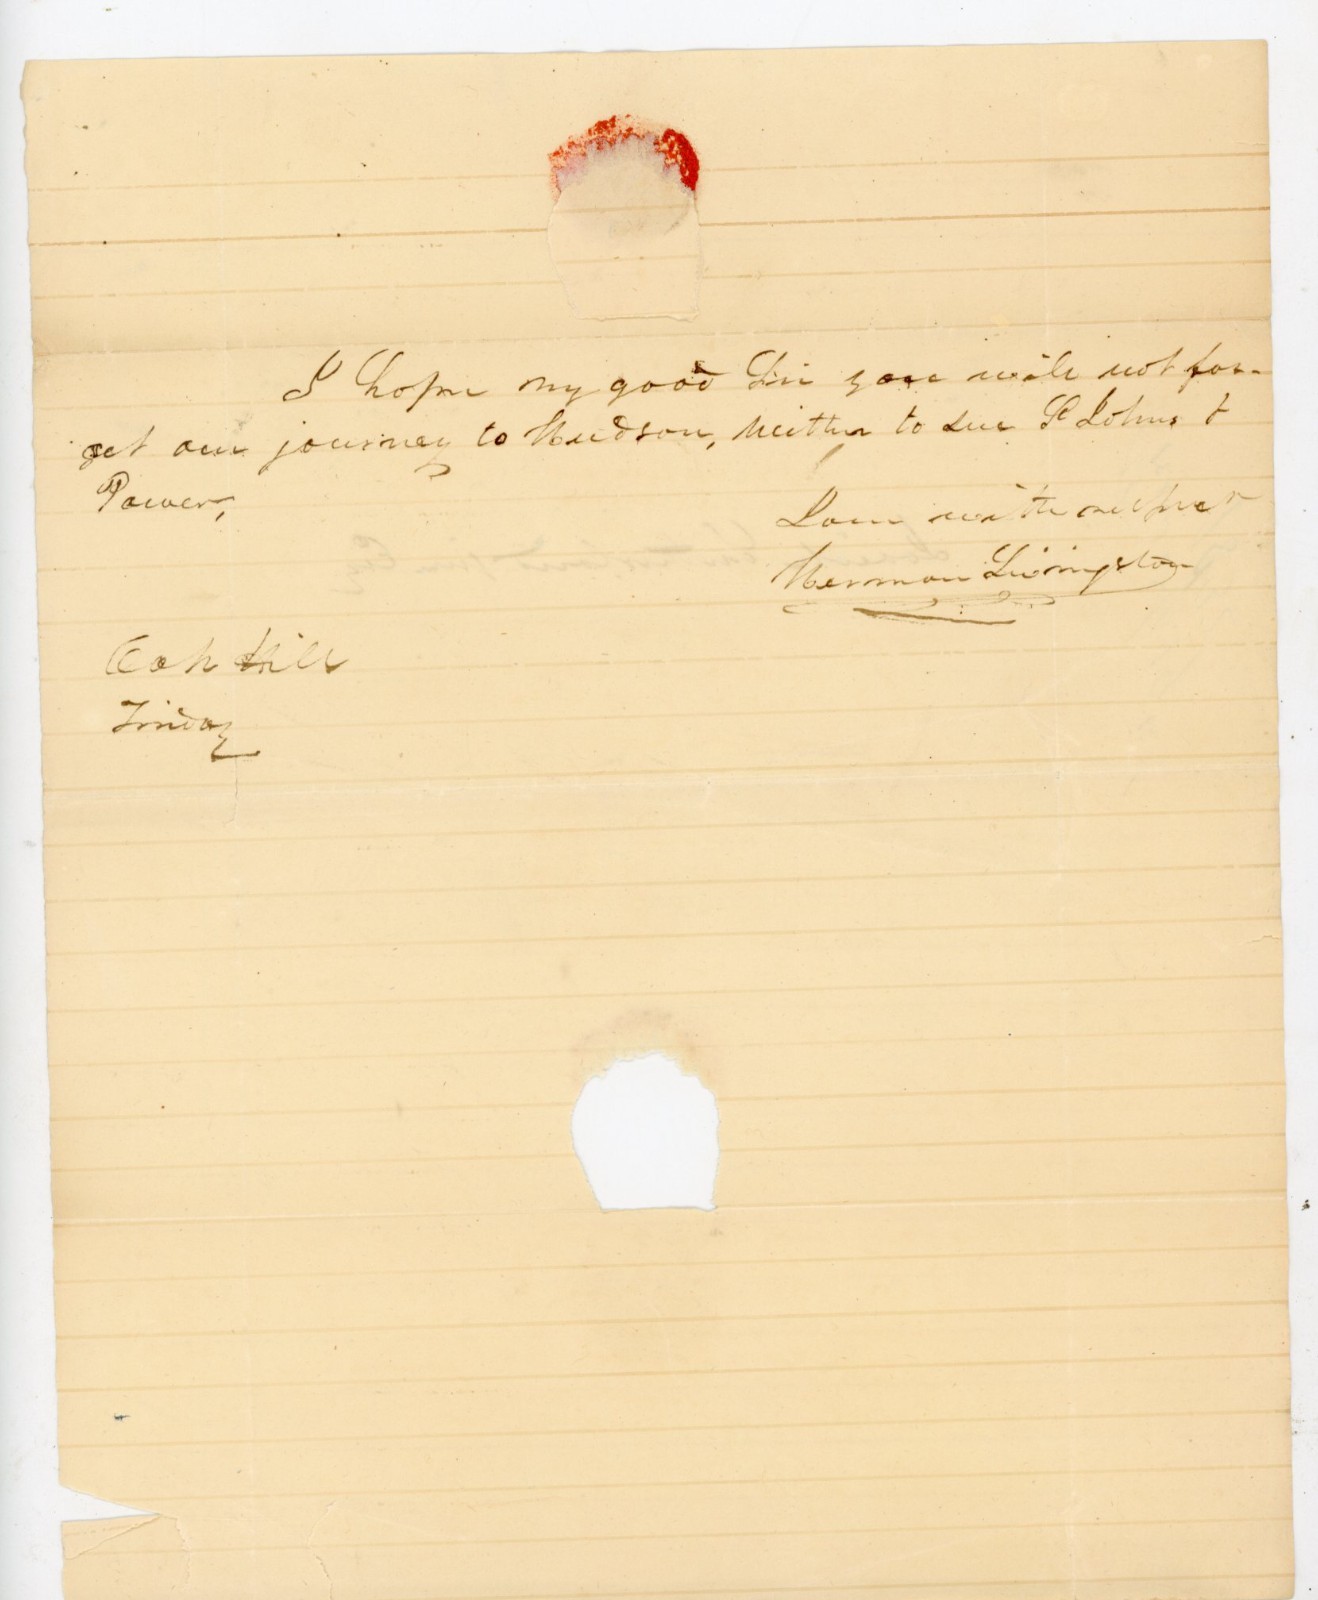 I hope my good Sir you will not for-
get our journey to Hudson, neither to see St Johns &
Power,
I am with respect
Herman Livingston
Oak Hill
Friday